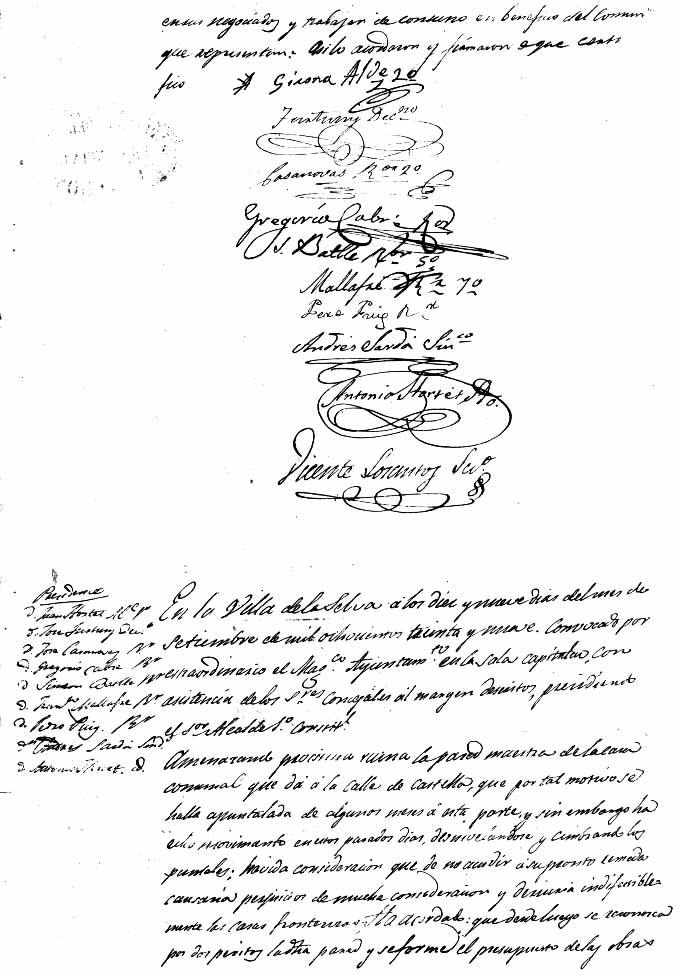 en sus negociados y trabajar de consuno en beneficio del Comun
que representan: Asi lo acordaron y firmaron de que certi
fico
Girona Alde 2º
Fustuny Decno
Casanovas Ror 2º
Gregorio Cabré Ror
S. Batlle Ror 5º
Mallafré Rr 7º
Pere Puig Rr
Andrés Sardá Sinco
Antonio
Vicente Lorantos Srio.
Presidence
D. Juan Hortet Alce 1º
D. Jose Fustuny Decno
D. Jose Rr
D. Gregorio Cabré Rr
D. Simeon Batlle Rr
D. Franco Mallafré Rr
D. Pero Puig. Rr
D. Andres Sardá Sindco
D. Antonio
En la Villa de la Selva á los diez y nueve dias del mes de
Setiembre de mil ochocientos treinta y nueve. Convocado por
estraordinario el Magco Ayuntamto en la sala capitular, con
asistencia de los Sres Concejales al margen descritos, presidiendo
el Sor Alcalde 1º Constitl
Amenazando procsima ruina la pared maestra de la casa
comunal que dá á la calle de Castellá, que por tal motivo se
halla apuntalada de algunos meses á esta parte, y sin embargo ha
echo movimiento en estos pasados dias, desnivelandose y cimbrando los
puntales: havida consideracion que de no acudir á su pronto remedio
causaria perjuicios de mucha consideracion y derruiria indefectible
mente las casas fronterizas: Ha acordado: que desde luego se reconosca
por dos peritos la dha pared y se forme el presupuesto de las obras